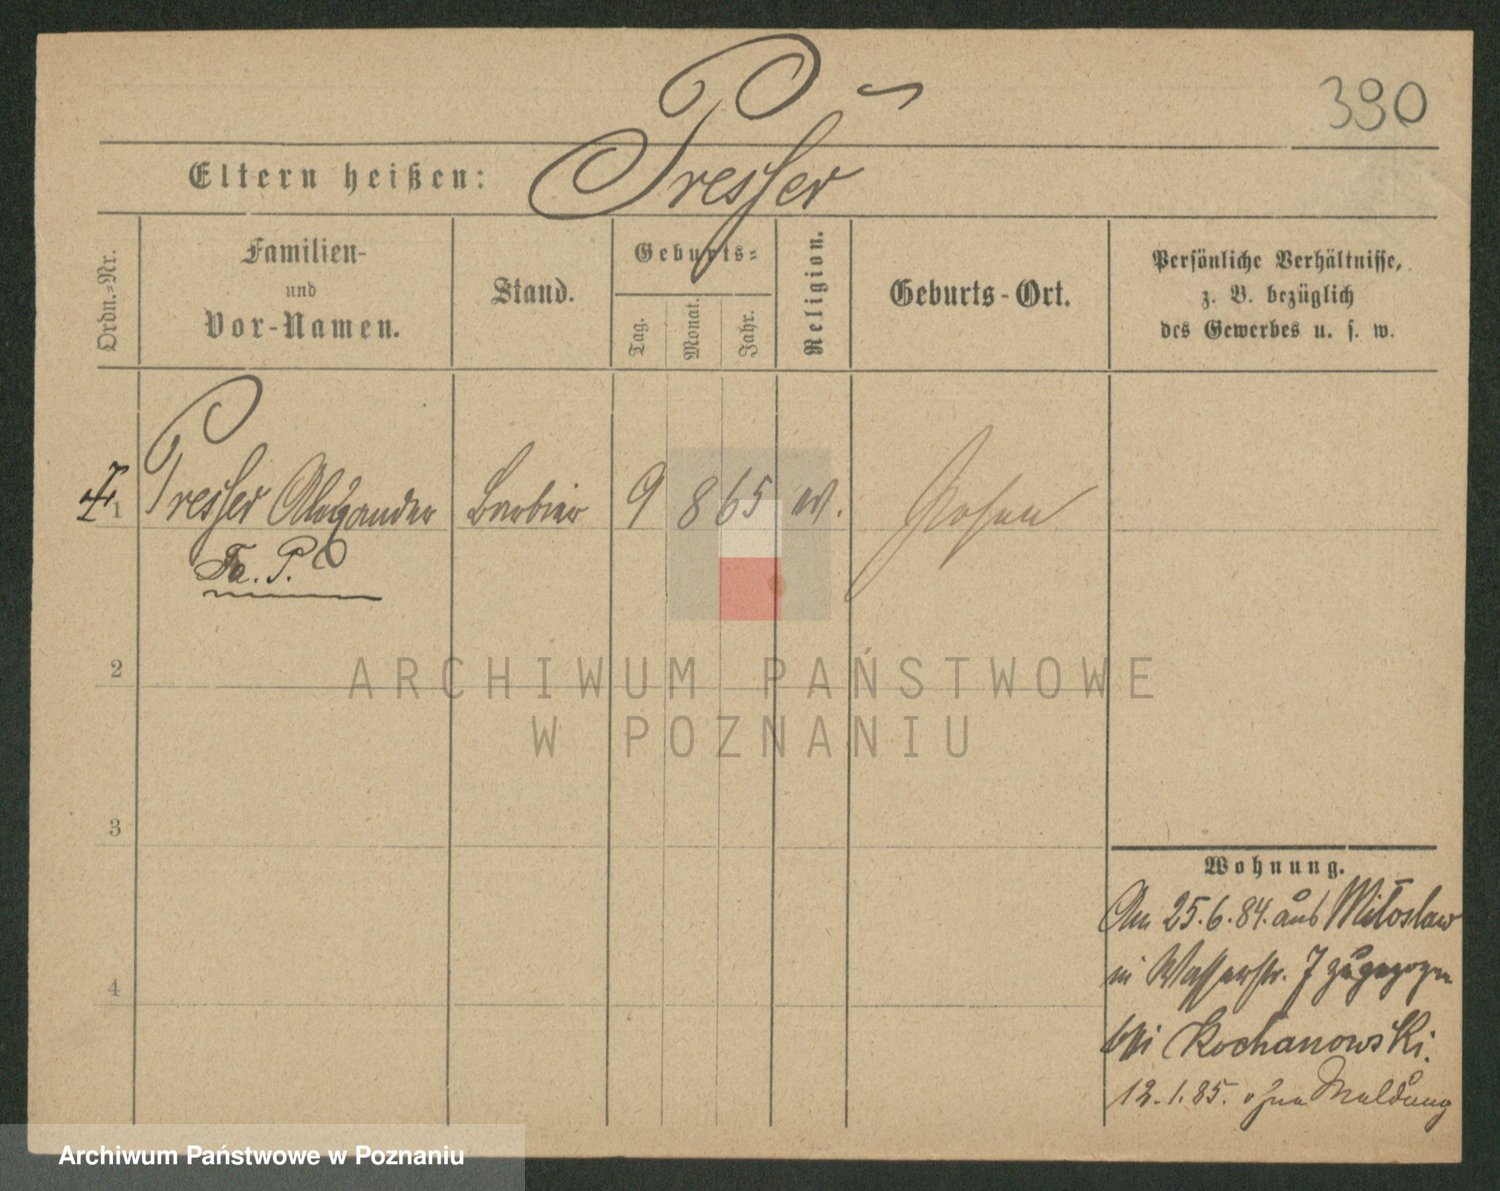 390
Eltern heißen: Presser
Ordn.-Nr.
Familien-
und
Vor-Namen.
Stand.
Geburts-
Tag.
Monat.
Jahr.
Religion.
Geburts-Ort.
Persönliche Verhältnisse,
z. B. bezüglich
des Gewerbes u. s. w.
1 Presser Alexander Barbier 9 8 65 Posen
Fa. P.
2
ARCHIWUM PAŃSTWOWE
W POZNANIU
3
Wohnung.
Am 25.6.84. aus Miłosław
in Wasserstr. 7 zugezogen
bei Kochanowski.
4
12.1.85. ohne Meldung
Archiwum Państwowe w Poznaniu